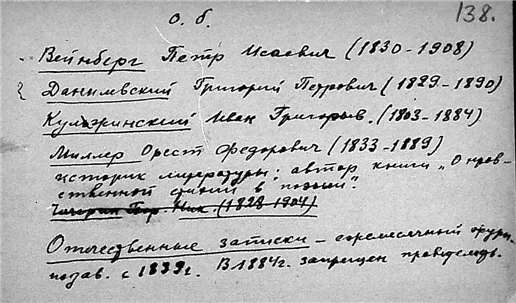 о. б.
138.
Вейнберг Петр Исаевич (1830-1908)
Данилевский Григорий Петрович (1829-1890)
Кульжинский Иван Григорьев. (1803-1884)
Миллер Орест Федорович (1833-1889)
историк литературы; автор книги „О нрав-
ственной стихии в поэзии".
Чичерин Бор. Ник. (1828-1904)
Отечественные записки – ежемесячный журн.
издав. с 1839г. В 1884г. запрещен правительств.